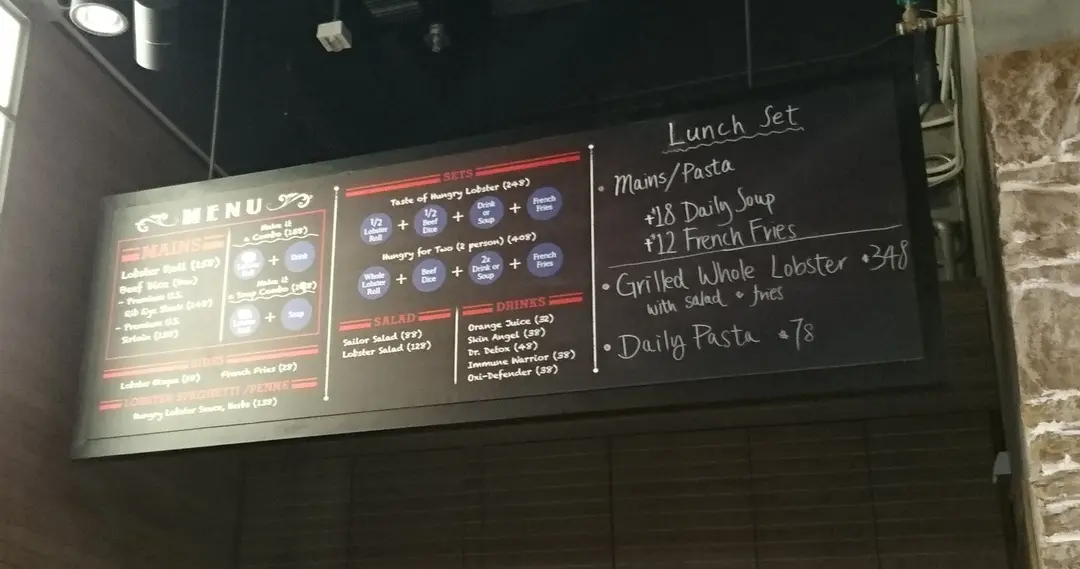 MENU
MAINS
Lobster Roll (188)
Beef Dice
- Premium U.S.
Rib Eye Steak (248)
- Premium U.S.
Sirloin (188)
Make it
a Combo (188)
Lobster Roll + Drink
Make it
a Soup Combo
Lobster Roll + Soup
SIDES
Lobster Bisque
French Fries (28)
LOBSTER SPAGHETTI / PENNE
Hungry Lobster Sauce, Herbs (138)
SETS
Taste of Hungry Lobster (248)
1/2 Lobster Roll + 1/2 Beef Dice + Drink or Soup + French Fries
Hungry for Two (2 person) (408)
Whole Lobster Roll + Beef Dice + 2x Drink or Soup + French Fries
SALAD
Sailor Salad (88)
Lobster Salad (128)
DRINKS
Orange Juice (32)
Skin Angel (38)
Dr. Detox (48)
Immune Warrior (38)
Oxi-Defender (38)
Lunch Set
• Mains/Pasta
+$18 Daily Soup
+$12 French Fries
• Grilled Whole Lobster $348
with salad & fries
• Daily Pasta $78